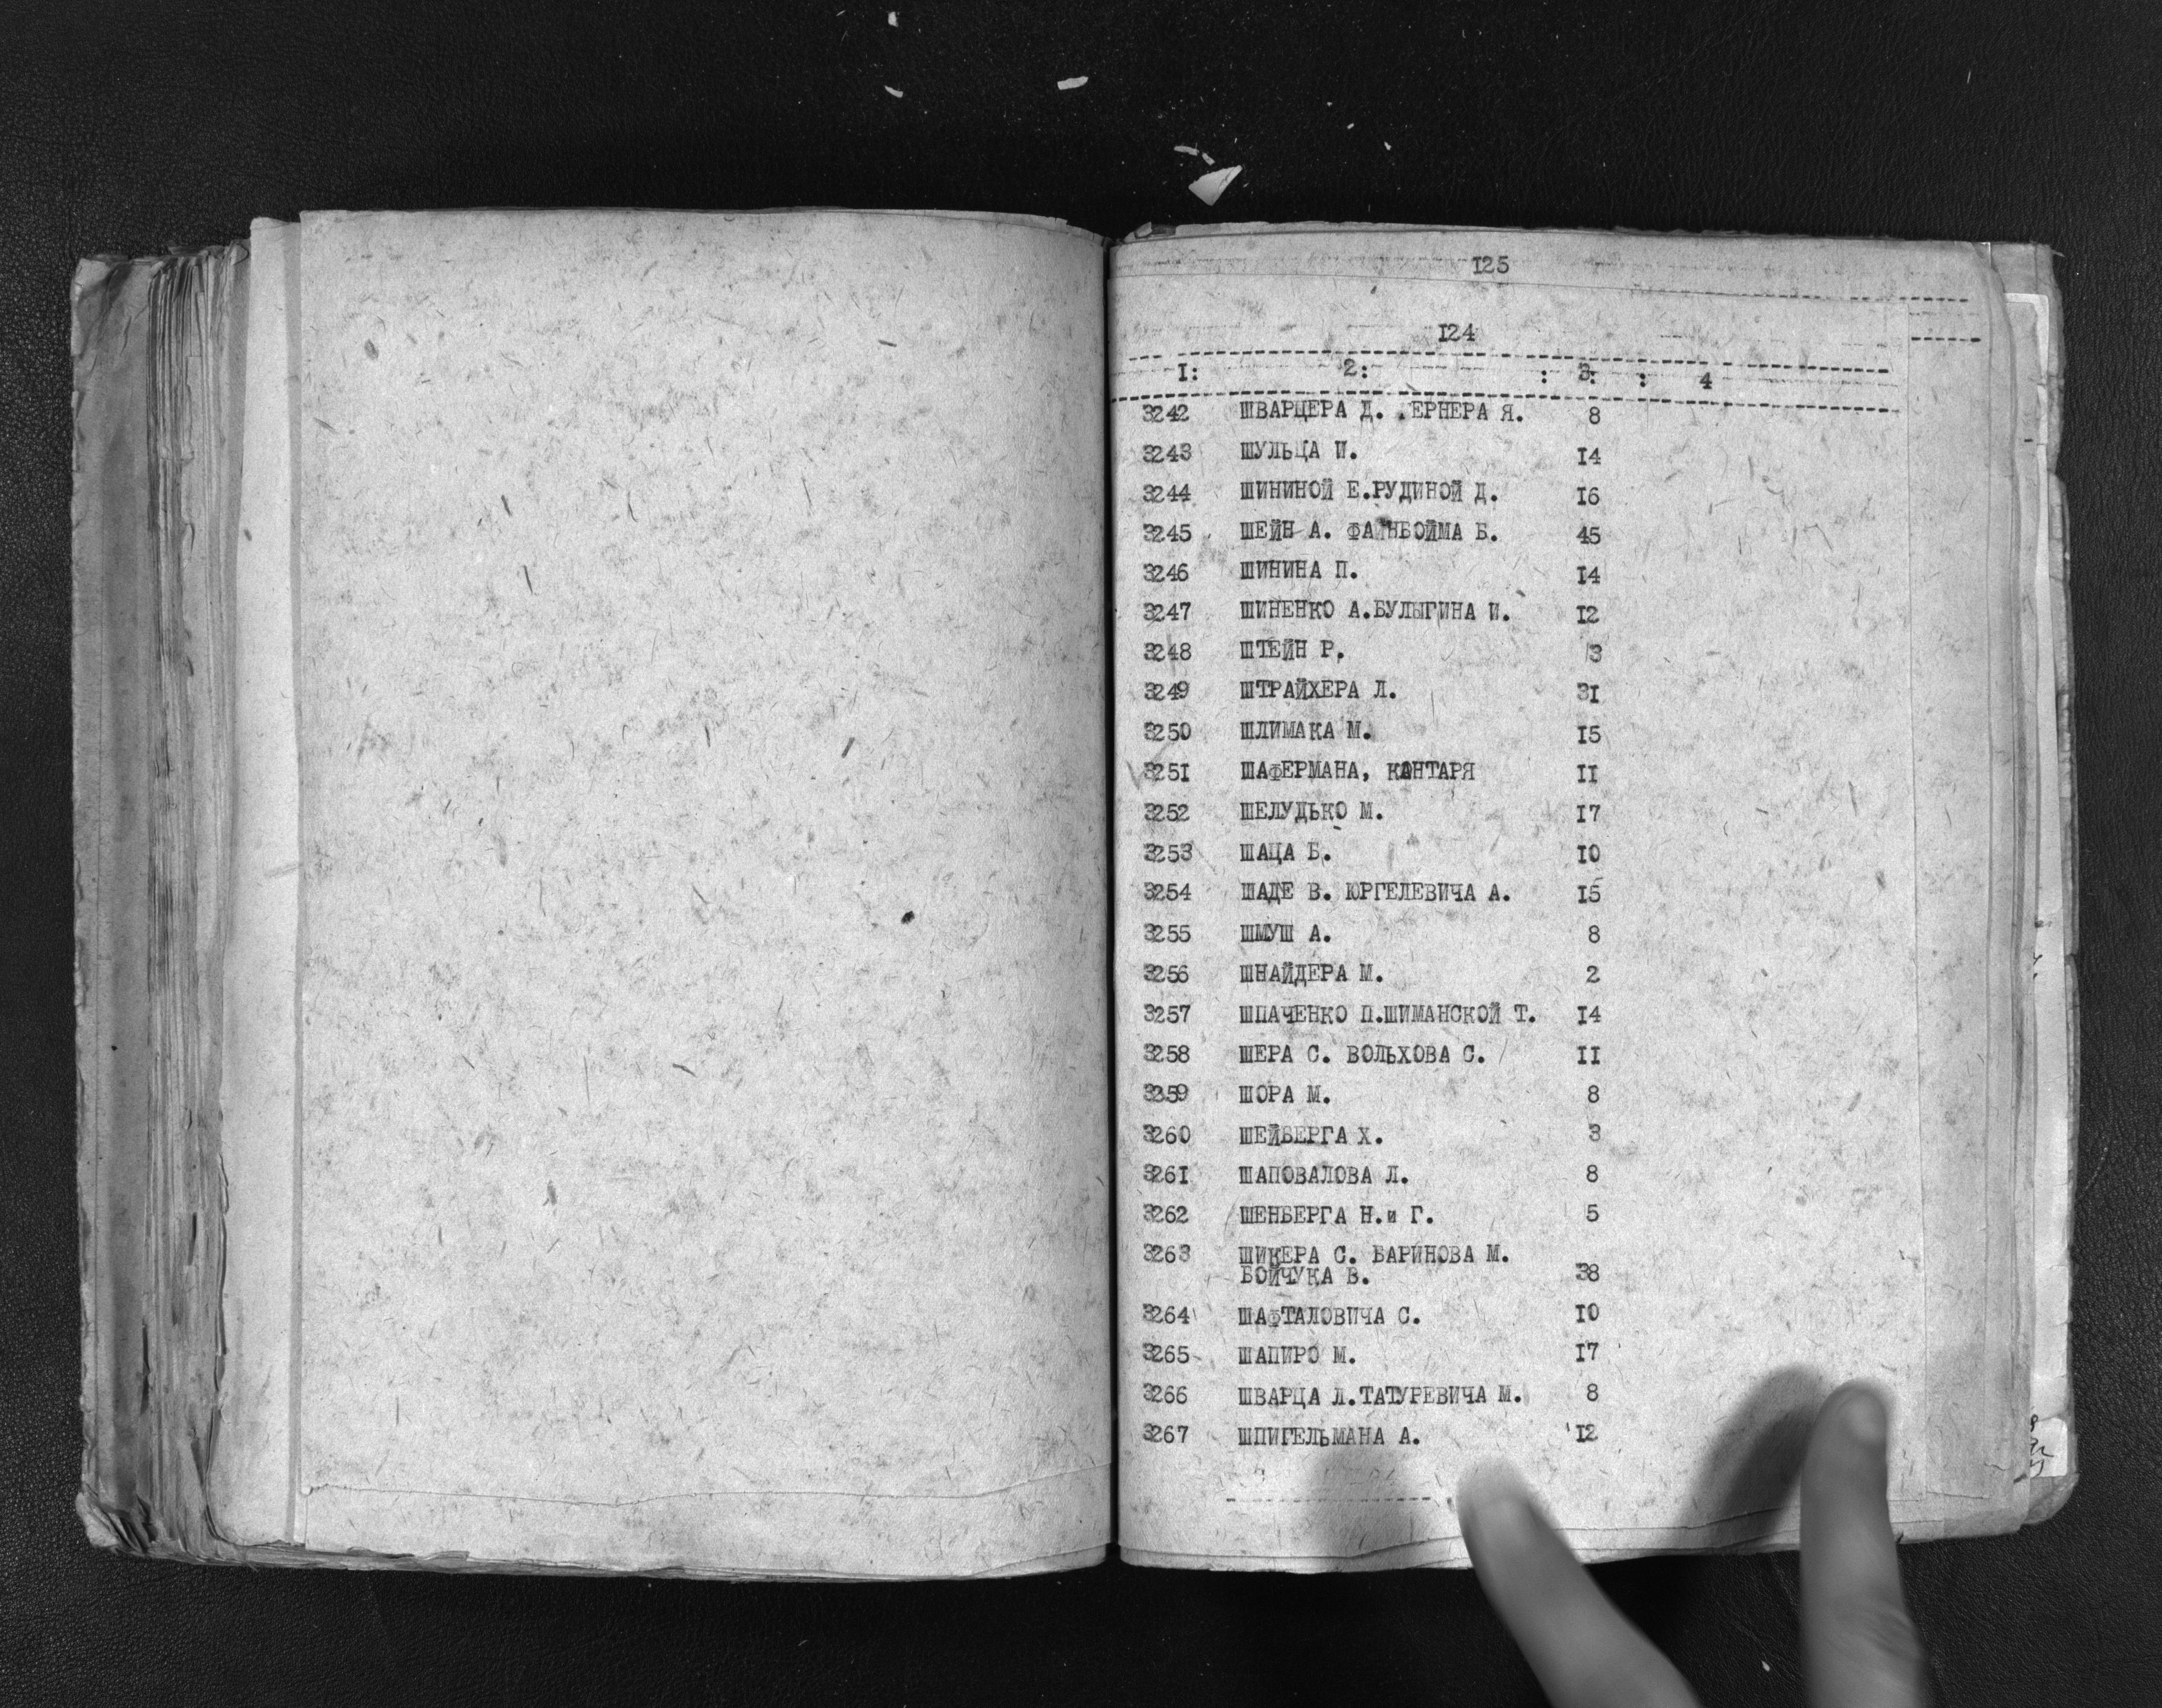 125
124
I: 2: : 3: : 4
3242 ШВАРЦЕРА Д. .ЕРНЕРА Я. 8
3243 ШУЛЬЦА И. I4
3244 ШИНИНОЙ Е.РУДИНОЙ Д. I6
3245 ШЕЙН А. ФАЙНБОЙМА Б. 45
3246 ШИНИНА П. I4
3247 ШИНЕНКО А.БУЛЫГИНА И. I2
3248 ШТЕЙН Р. 3
3249 ШТРАЙХЕРА Л. 3I
3250 ШЛИМАКА М. I5
325I ШАФЕРМАНА, КАНТАРЯ II
3252 ШЕЛУДЬКО М. I7
3253 ШАЦА Б. I0
3254 ШАДЕ В. ЮРГЕЛЕВИЧА А. I5
3255 ШМУШ А. 8
3256 ШНАЙДЕРА М. 2
3257 ШПАЧЕНКО П.ШИМАНСКОЙ Т. I4
3258 ШЕРА С. ВОЛЬХОВА С. II
3259 ШОРА М. 8
3260 ШЕЙБЕРГА Х. 3
326I ШАПОВАЛОВА Л. 8
3262 ШЕНБЕРГА Н.и Г. 5
3263 ШИКЕРА С. БАРИНОВА М.
БОЙЧУКА В. 38
3264 ШАФТАЛОВИЧА С. I0
3265 ШАПИРО М. I7
3266 ШВАРЦА Л.ТАТУРЕВИЧА М. 8
3267 ШПИГЕЛЬМАНА А. I2